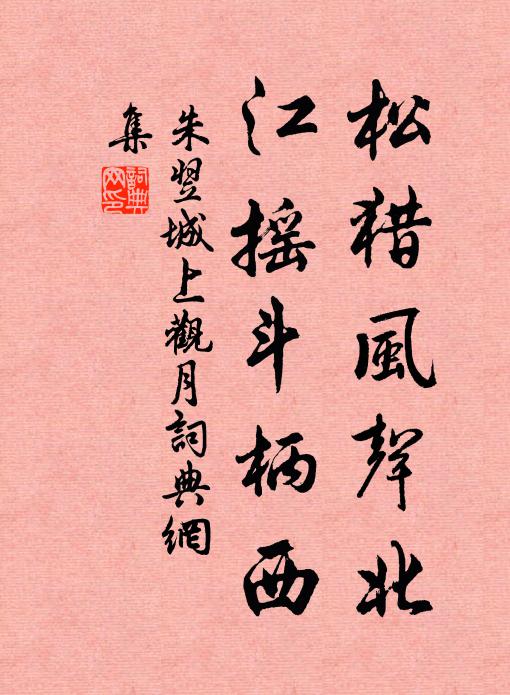 松猎風聲北
江摇斗柄西
朱翌城上觀月詞典網
集
詞典网印